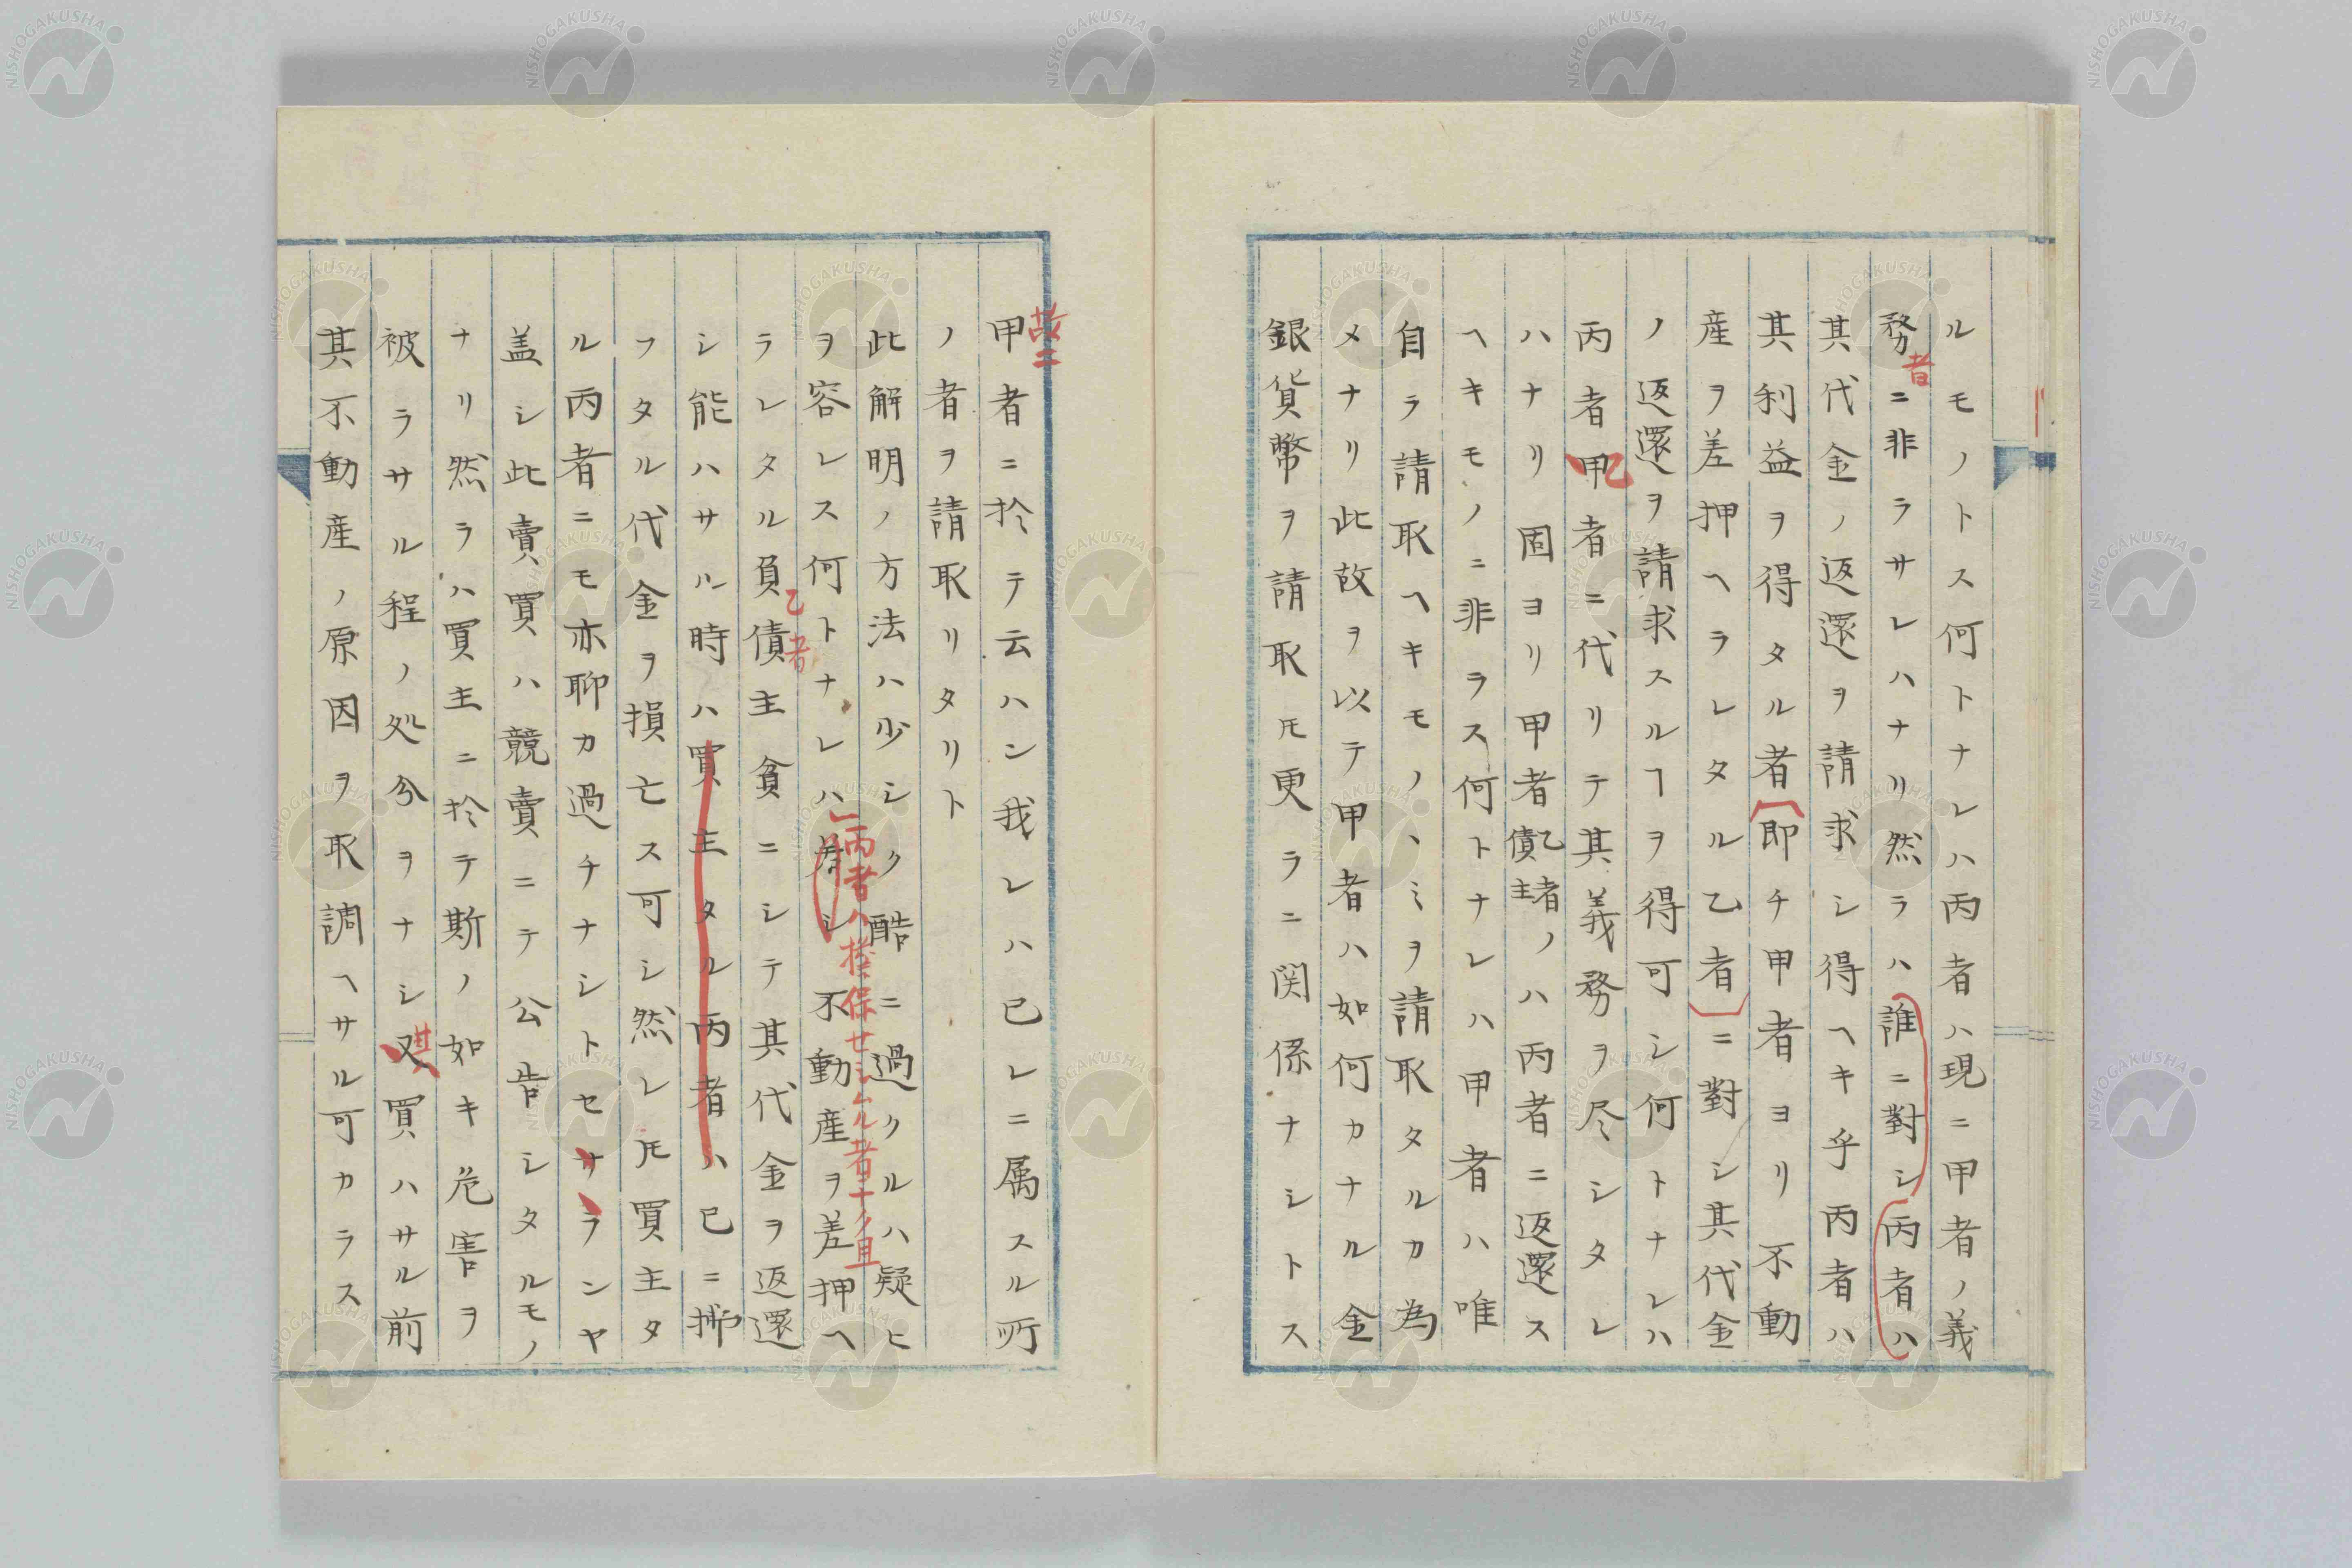 ルモノトス何トナレハ丙者ハ現ニ甲者ノ義
務者ニ非ラサレハナリ然ラハ誰ニ對シ丙者ハ
其代金ノ返還ヲ請求シ得ヘキ乎丙者ハ
其利益ヲ得タル者即チ甲者ヨリ不動
産ヲ差押ヘラレタル乙者ニ對シ其代金
ノ返還ヲ請求スルヿヲ得可シ何トナレハ
丙者甲乙者ニ代リテ其義務ヲ尽シタレ
ハナリ固ヨリ甲者乙者債主ノハ丙者ニ返還ス
ヘキモノニ非ラス何トナレハ甲者ハ唯
自ラ請取ヘキモノヽミヲ請取タルカ為
メナリ此故ヲ以テ甲者ハ如何カナル金
銀貨幣ヲ請取𪜈更ラニ関係ナシトス
故ニ
甲者ニ於テ云ハン我レハ已レニ属スル所
ノ者ヲ請取リタリト
此解明ノ方法ハ少シク酷ニ過クルハ疑ヒ
丙者ハ擔保セシムル者ナク且
ヲ容レス何トナレハ若シ不動産ヲ差押ヘ
乙者
ラレタル負債主貧ニシテ其代金ヲ返還
シ能ハサル時ハ買主タル丙者ハ已ニ拂
フタル代金ヲ損亡ス可シ然レ𪜈買主タ
ル丙者ニモ亦聊カ過チナシトセサランヤ
盖シ此賣買ハ競賣ニテ公告シタルモノ
ナリ然ラハ買主ニ於テ斯ノ如キ危害ヲ
被ラサル程ノ処分ヲナシ又其買ハサル前
其不動産ノ原因ヲ取調ヘサル可カラス
NISHOGAKUSHA